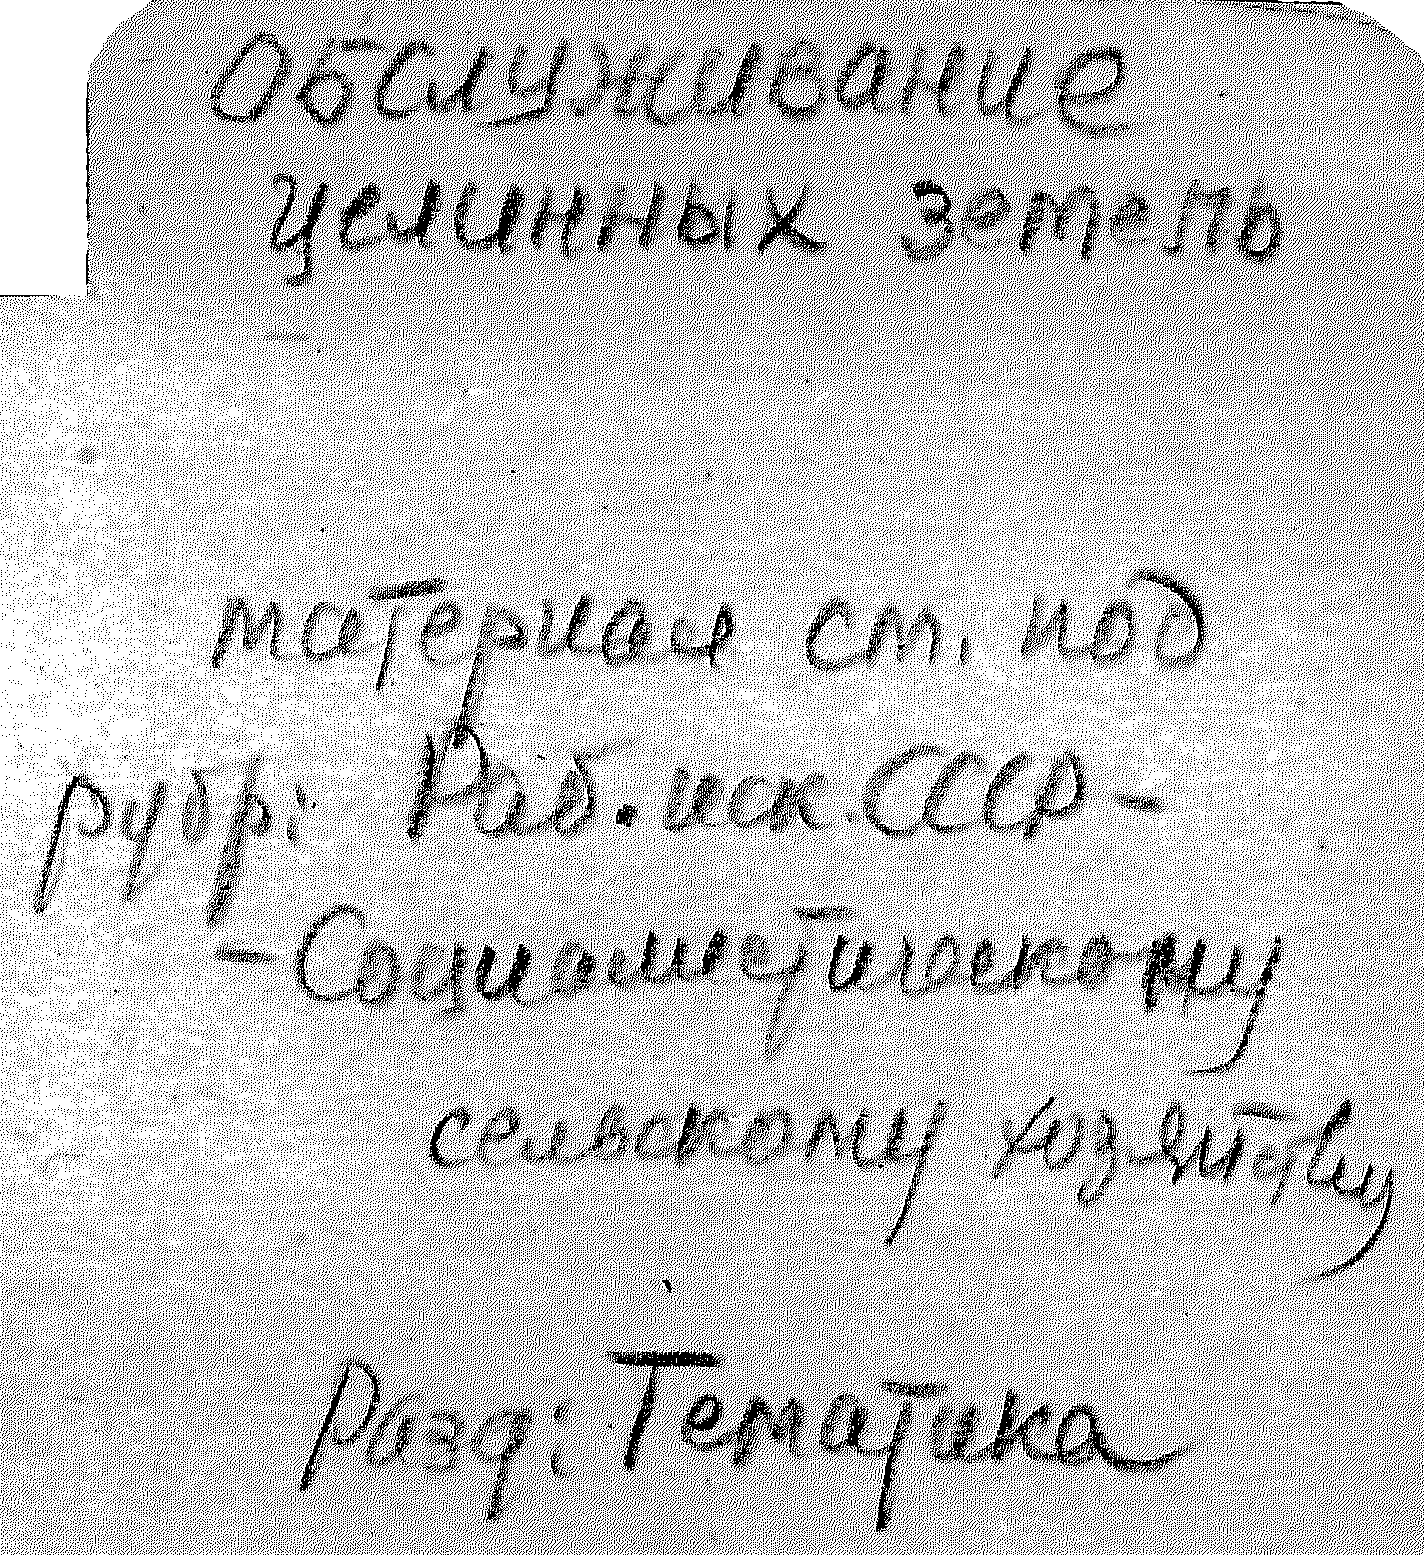 Обслуживание
целинных земель
материал см. под
рубр: Раб. иск СССР -
- Социалистическому
сельскому хозяйству
Разд: Тематика